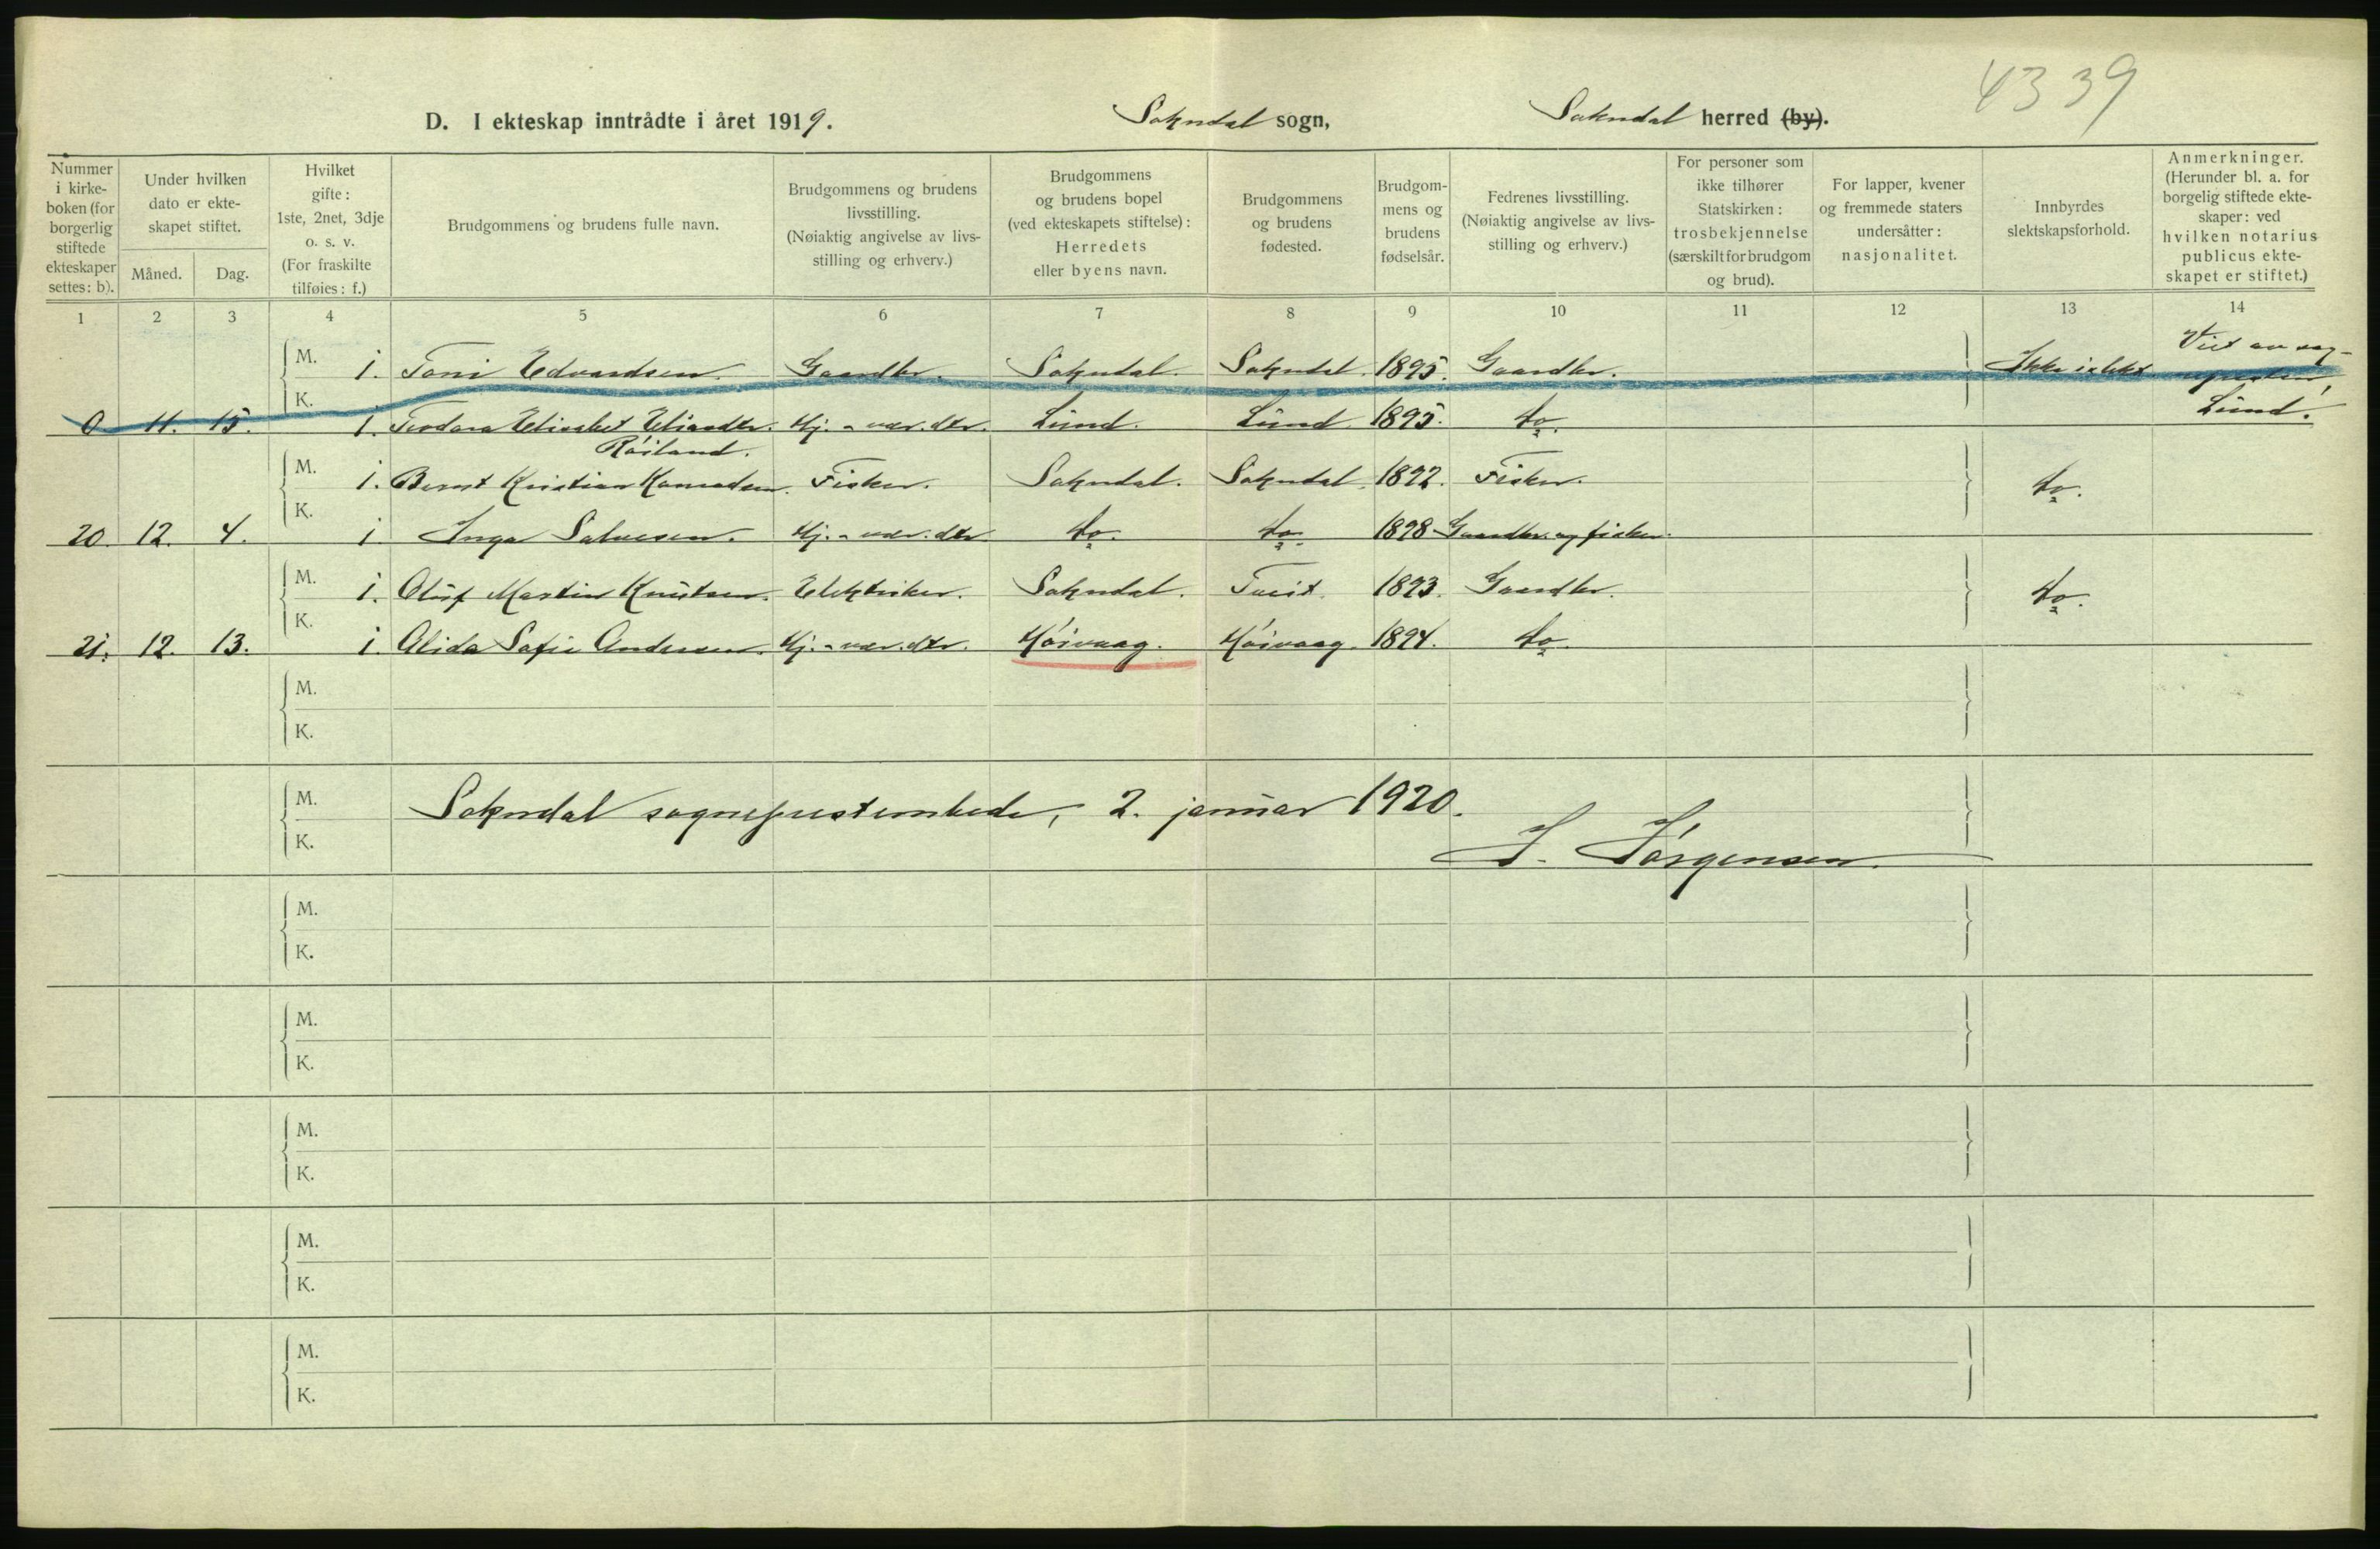 4339
D. I ekteskap inntrådte i året 1919. Sokndal sogn, Sokndal herred (by).
Nummer i kirke-boken (for borgerlig stiftede ekteskaper settes: b).
Under hvilken dato er ekte-skapet stiftet.
Måned. Dag.
Hvilket gifte: 1ste, 2net, 3dje o. s. v. (For fraskilte tilføies: f.)
Brudgommens og brudens fulle navn.
Brudgommens og brudens livsstilling. (Nøiaktig angivelse av livs-stilling og erhverv.)
Brudgommens og brudens bopel (ved ekteskapets stiftelse): Herredets eller byens navn.
Brudgommens og brudens fødested.
Brudgom-mens og brudens fødselsår.
Fedrenes livsstilling. (Nøiaktig angivelse av livs-stilling og erhverv.)
For personer som ikke tilhører Statskirken: trosbekjennelse (særskilt for brudgom og brud).
For lapper, kvener og fremmede staters undersåtter: nasjonalitet.
Innbyrdes slektskapsforhold.
Anmerkninger. (Herunder bl. a. for borgelig stiftede ekte-skaper: ved hvilken notarius publicus ekte-skapet er stiftet.)
1 2 3 4 5 6 7 8 9 10 11 12 13 14
M. 1. Toni Edvardsen. Gaardbr. Sokndal. Sokndal. 1895. Gaardbr. Ikke i slekt Viet av sog-nepresten, Lund.
0 11. 15. K. 1. Teodora Elisabet Eliasdtr. Hj.-vær. dtr. Lund. Lund. 1895. do.
Röiland.
M. 1. Bernt Kristian Konradsen. Fisker. Sokndal. Sokndal. 1892. Fisker. do.
20. 12. 4. K. 1. Inga Salvesen. Hj.-vær. dtr. do. do. 1898 Gaardbr. og fisker.
M. 1. Oluf Martin Knutsen. Elektriker. Sokndal. Tveit. 1893. Gaardbr. do.
21. 12. 13. K. 1. Alida Sofie Andersen. Hj.-vær. dtr. Höivaag. Höivaag. 1894. do.
M.
K.
M.
Sokndal sogneprestembede, 2. januar 1920.
K.
J. Jörgensen.
M.
K.
M.
K.
M.
K.
M.
K.
M.
K.